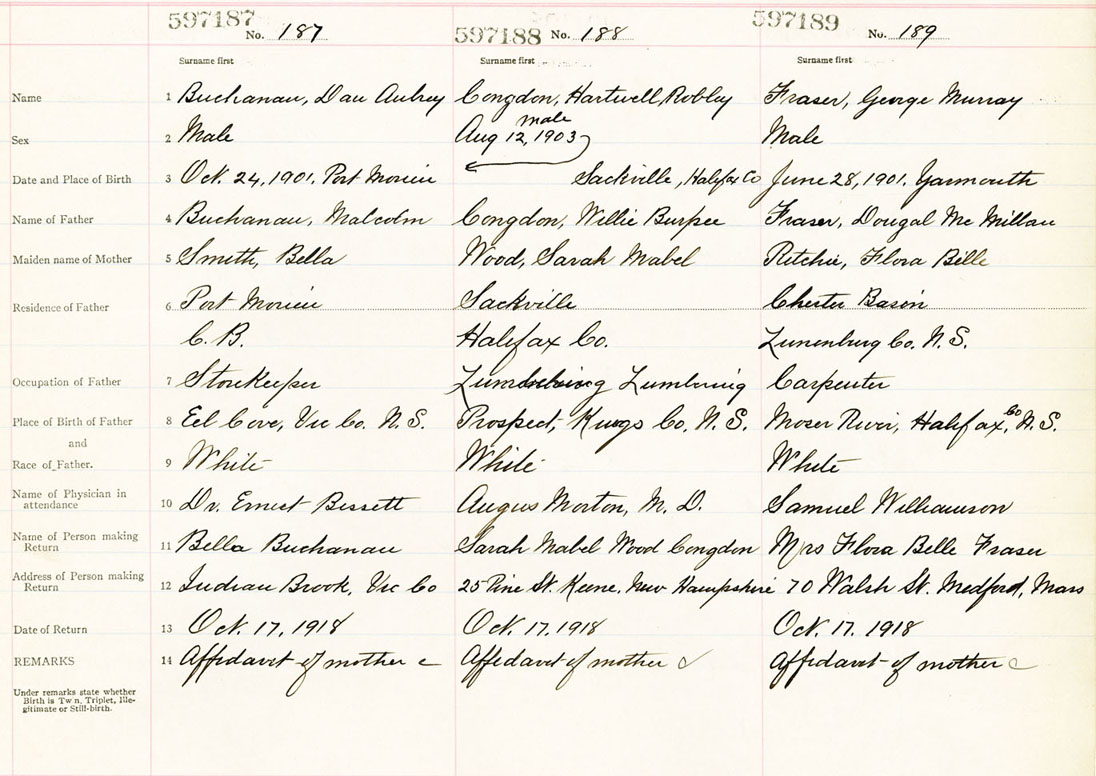 597187 No. 187 597188 No. 188 597189 No. 189
Surname first Surname first Surname first
Name 1 Buchanan, Dan Aubrey Congdon, Hartwell Robley Fraser, George Murray
male
Sex 2 Male Aug 12, 1903 Male
Date and Place of Birth 3 Oct. 24, 1901, Port Morien Sackville, Halifax Co June 28, 1901. Yarmouth
Name of Father 4 Buchanan, Malcolm Congdon, Willie Burpee Fraser, Dougal Mc Millan
Maiden name of Mother 5 Smith, Bella Wood, Sarah Mabel Ritchie, Flora Belle
Residence of Father 6 Port Morien Sackville Chester Basin
C. B. Halifax Co. Lunenburg Co. N. S.
Occupation of Father 7 Storekeeper Lumbering Carpenter
Place of Birth of Father 8 Eel Cove, Vic Co. N. S. Prospect, Kings Co. N. S. Moser River, Halifax Co, N. S.
and
Race of Father. 9 White White White
Name of Physician in
attendance 10 Dr. Ernest Bessett Angus Morton, M. D. Samuel Williamson
Name of Person making
Return 11 Bella Buchanan Sarah Mabel Wood Congdon Mrs Flora Belle Fraser
Address of Person making
Return 12 Indian Brook, Vic Co 25 Pine St. Keene, New Hampshire 70 Walsh St. Medford, Mass
Date of Return 13 Oct. 17, 1918 Oct. 17, 1918 Oct. 17. 1918
REMARKS 14 Affidavit of mother Affidavit of mother Affidavit of mother
Under remarks state whether
Birth is Twn, Triplet, Ille-
gitimate or Still-birth.